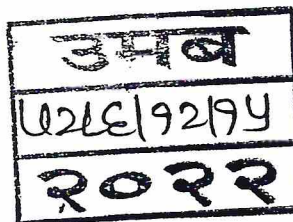 उमब
७२८६/१२/१५
२०२२